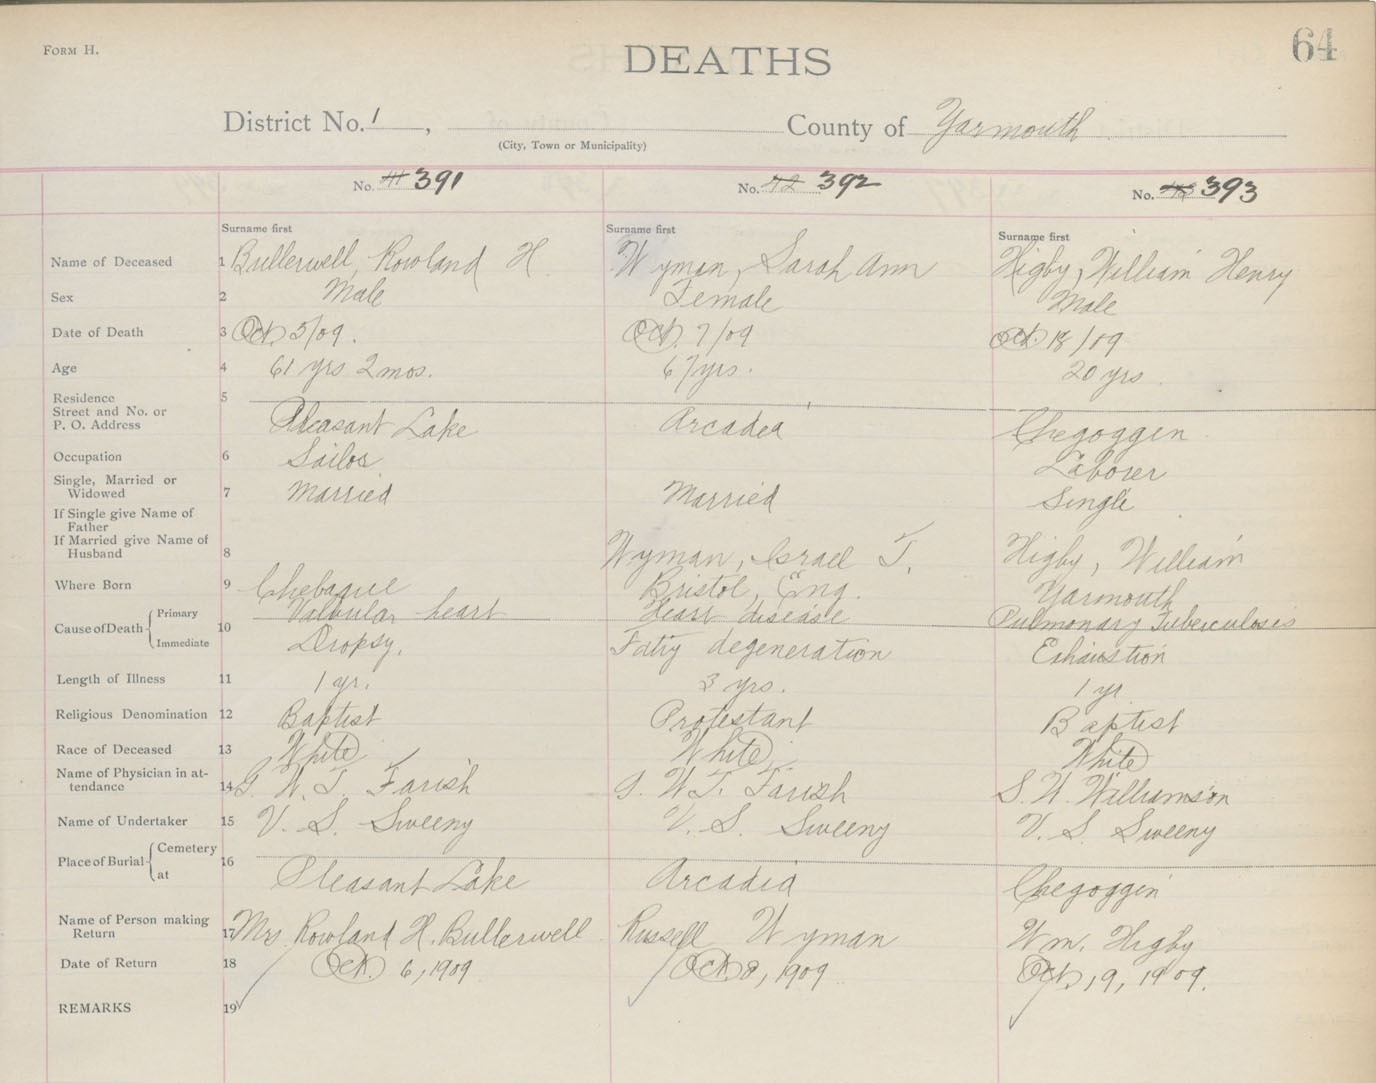 FORM H.
DEATHS
64
District No. 1, County of Yarmouth
(City, Town or Municipality)
No. 41 391
No. 42 392
No. 43 393
Surname first
Surname first
Surname first
Name of Deceased 1 Bullerwell, Rowland H. Wyman, Sarah Ann Higby, William Henry
Sex 2 Male Female Male
Date of Death 3 Oct. 5/09. Oct. 7/09 Oct. 18/09
Age 4 61 yrs 2 mos. 67 yrs. 20 yrs
Residence 5
Street and No. or
P. O. Address Pleasant Lake Arcadia Chegoggin
Occupation 6 Sailor Laborer
Single, Married or
Widowed 7 Married Married Single
If Single give Name of
Father
If Married give Name of
Husband 8 Wyman, Israel T. Higby, William
Where Born 9 Chebogue Bristol, Eng. Yarmouth
Cause of Death Primary Valvular heart Heart disease Pulmonary Tuberculosis
Immediate 10 Dropsy. Fatty degeneration Exhaustion
Length of Illness 11 1 yr. 3 yrs. 1 yr
Religious Denomination 12 Baptist Protestant Baptist
Race of Deceased 13 White White White
Name of Physician in at-
tendance 14 G. W. T. Farish G. W. T. Farish S. W. Williamson
Name of Undertaker 15 V. S. Sweeny V. S. Sweeny V. S. Sweeny
Place of Burial Cemetery 16
at Pleasant Lake Arcadia Chegoggin
Name of Person making
Return 17 Mrs Rowland H. Bullerwell Russell Wyman Wm. Higby
Date of Return 18 Oct. 6, 1909 Oct. 8, 1909 Oct. 19, 1909.
REMARKS 19